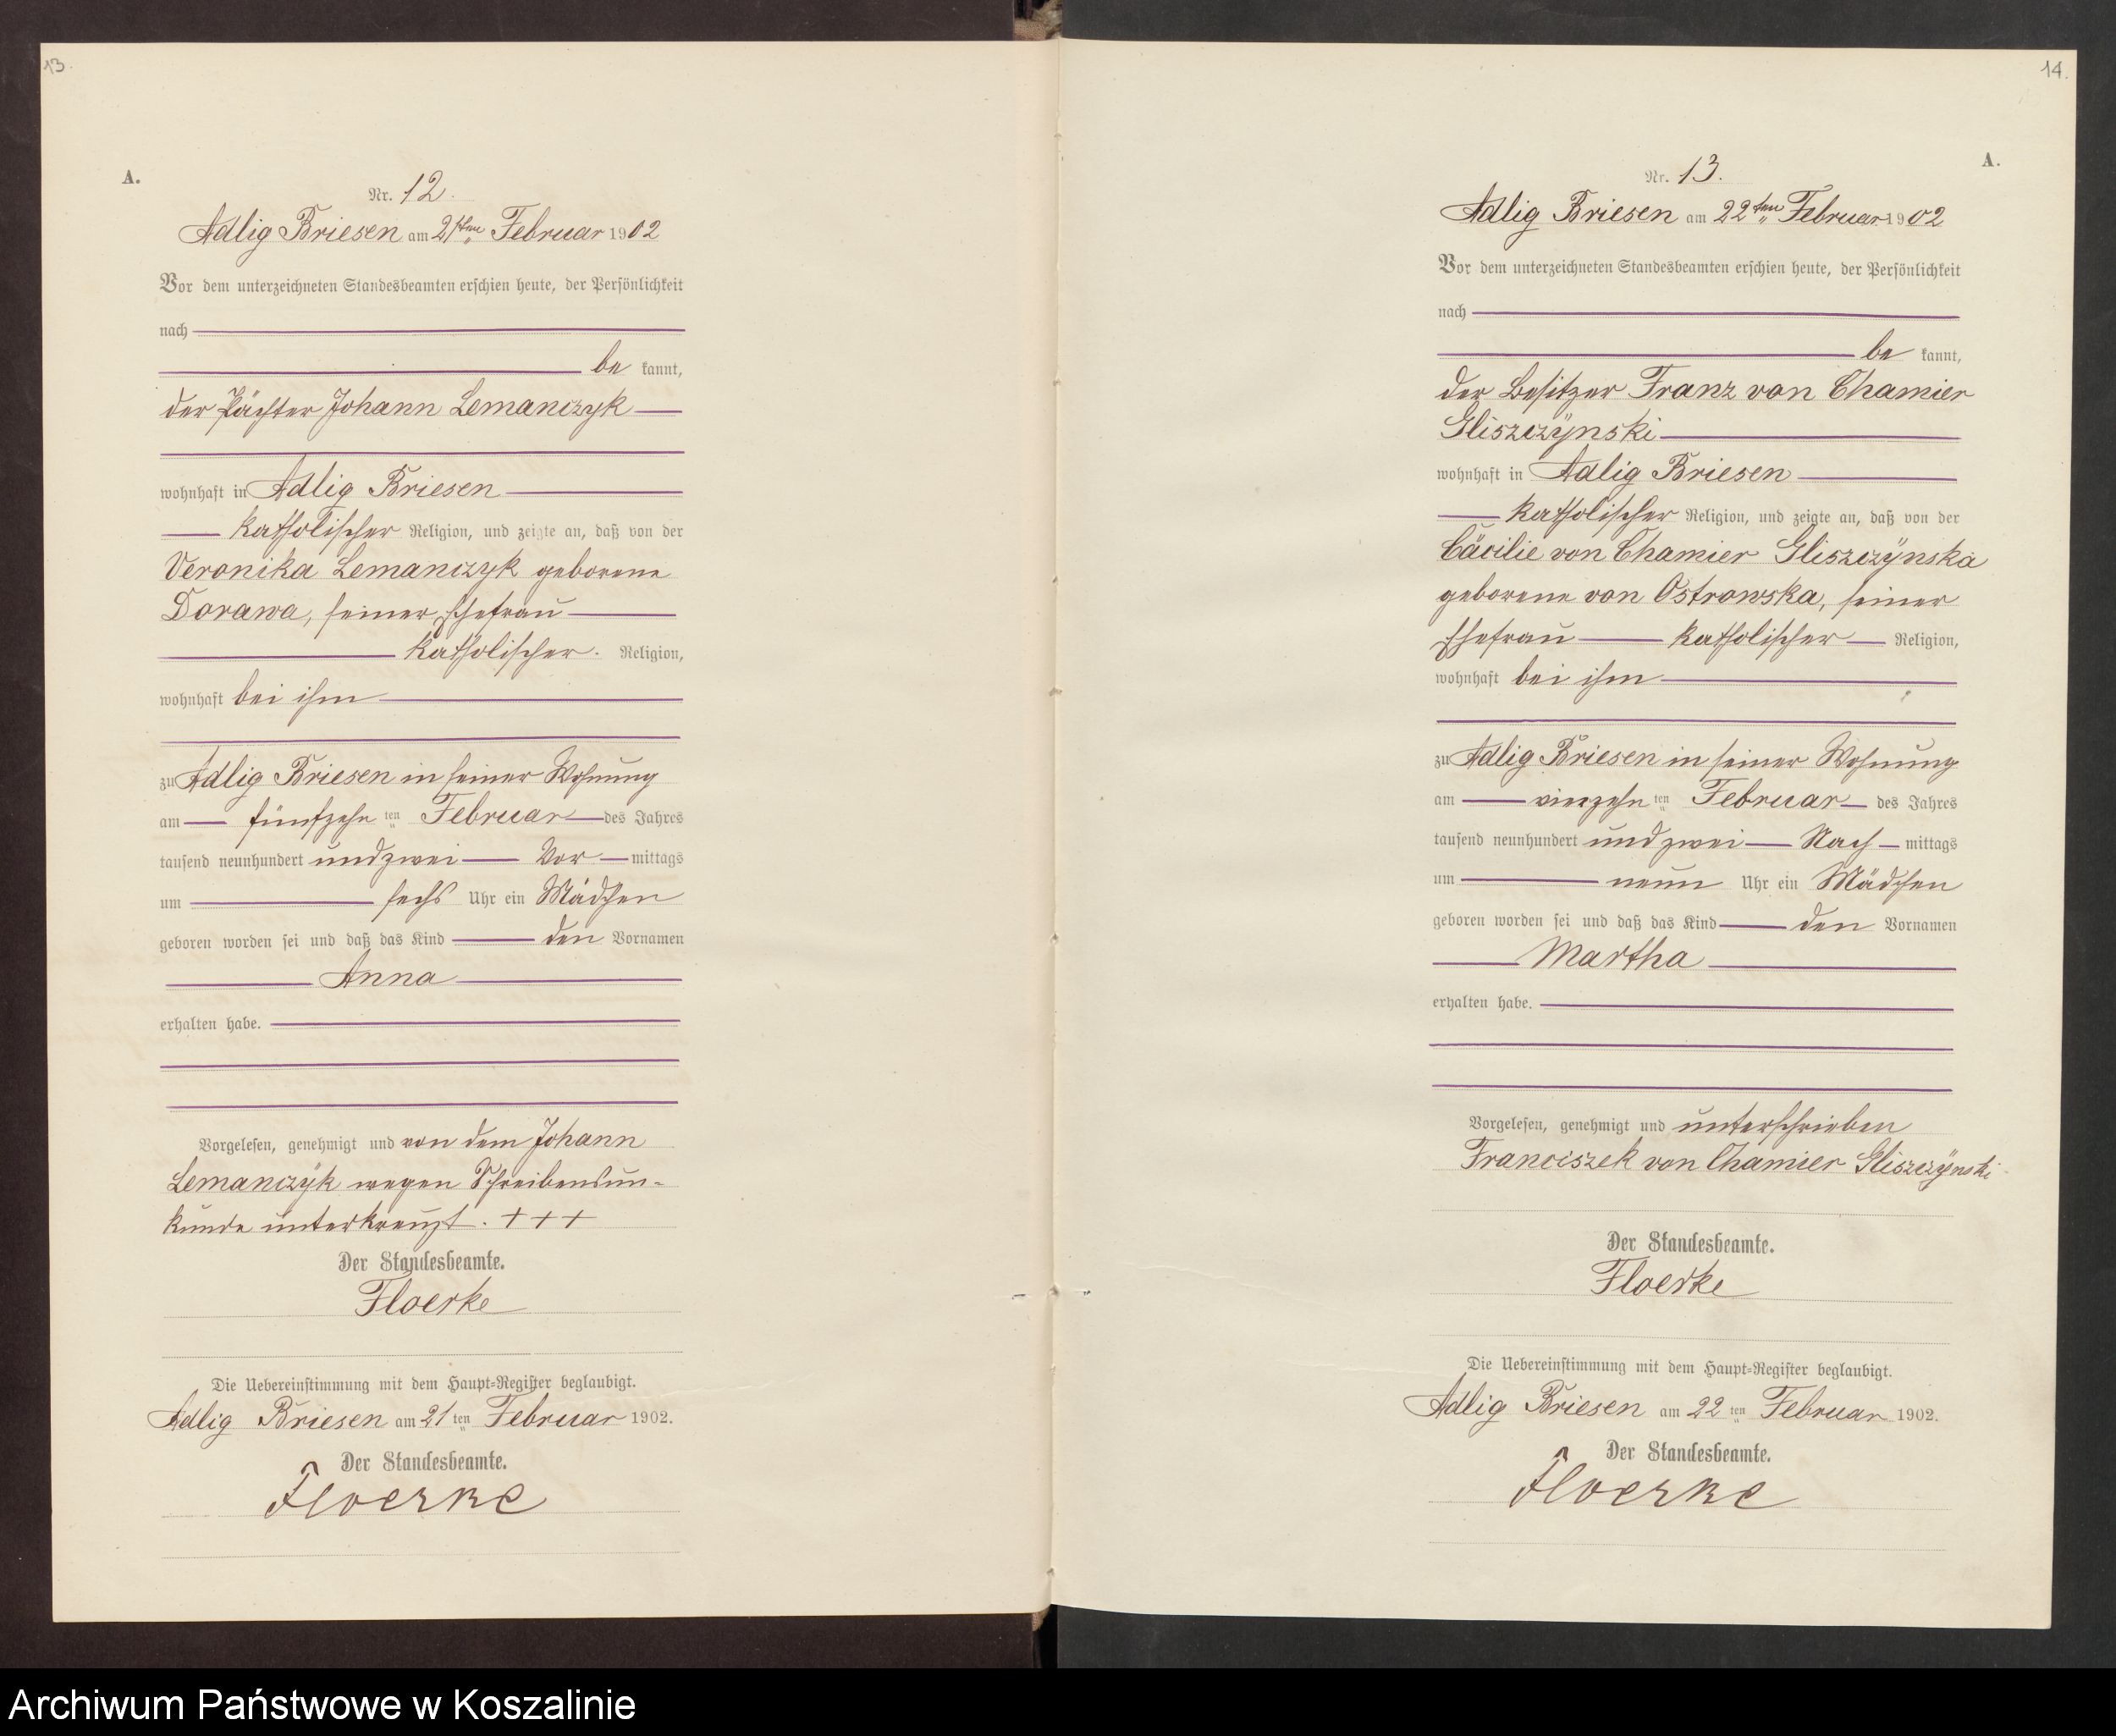 13.
A.
Nr. 12.
Adlig Briesen am 21ten Februar 1902
Vor dem unterzeichneten Standesbeamten erschien heute, der Persönlichkeit
nach
be kannt,
der Pächter Johann Lemanczyk
wohnhaft in Adlig Briesen
katholischer Religion, und zeigte an, daß von der
Veronika Lemanczyk geborene
Dorawa, seiner Ehefrau
katholischer. Religion,
wohnhaft bei ihm
zu Adlig Briesen in seiner Wohnung
am fünfzehn ten Februar des Jahres
tausend neunhundert und zwei Vor mittags
um sechs Uhr ein Mädchen
geboren worden sei und daß das Kind den Vornamen
Anna
erhalten habe.
Vorgelesen, genehmigt und von dem Johann
Lemanczyk wegen Schreibensun-
kunde unterkreuzt. +++
Der Standesbeamte.
Floerke
Die Uebereinstimmung mit dem Haupt-Register beglaubigt.
Adlig Briesen am 21 ten Februar 1902.
Der Standesbeamte.
Floerke
14.
A.
Nr. 13.
Adlig Briesen am 22ten Februar 1902
Vor dem unterzeichneten Standesbeamten erschien heute, der Persönlichkeit
nach
be kannt,
der Besitzer Franz von Chamier
Gliszczÿnski
wohnhaft in Adlig Briesen
katholischer Religion, und zeigte an, daß von der
Cäcilie von Chamier Gliszczÿnska
geborene von Ostrowska, seiner
Ehefrau katholischer Religion,
wohnhaft bei ihm
zu Adlig Briesen in seiner Wohnung
am vierzehn ten Februar des Jahres
tausend neunhundert und zwei Nach mittags
um neun Uhr ein Mädchen
geboren worden sei und daß das Kind den Vornamen
Martha
erhalten habe.
Vorgelesen, genehmigt und unterschrieben
Franciszek von Chamier Gliszczÿnski
Der Standesbeamte.
Floerke
Die Uebereinstimmung mit dem Haupt-Register beglaubigt.
Adlig Briesen am 22 ten Februar 1902.
Der Standesbeamte.
Floerke
Archiwum Państwowe w Koszalinie